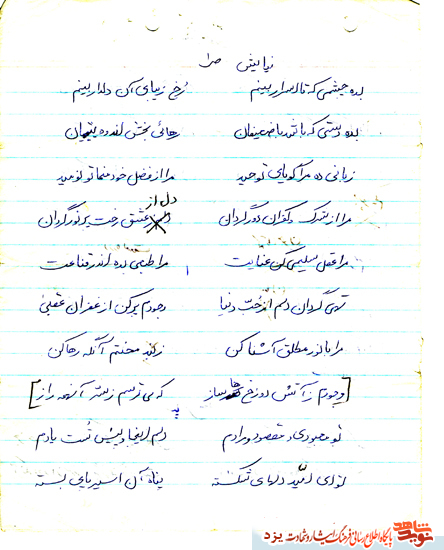 نیایش خدا
بده چشمی که تا اسرار بینم رخ زیبای آن دلدار بینم
بده دستی که باشد با ضعیفان رهائی بخش اندوه یتیمان
زبانی ده مرا گویای توحید مرا از فضل خود منما تو نومید
مرا از شرک و کفران دور گردان دل از عشق رخت پر نور گردان
مرا عقل سلیمی کن عنایت مرا طبعی بده اندر قناعت
تهی گردان دلم از حب دنیا وجودم پر کن از غفران عقبی
مرا با نور مطلق آشنا کن ز بند محنتم آنگه رها کن
[وجودم ز آتش دوزخ رها ساز که می ترسم ز
تو معبودی و مقصود و مرادم دلم اینجا و پیش تست یادم
تو ای امید دلهای شکسته پناه آن اسیر پای بسته
نوید شاهد
پایگاه اطلاع رسانی فرهنگ ایثار و شهادت یزد